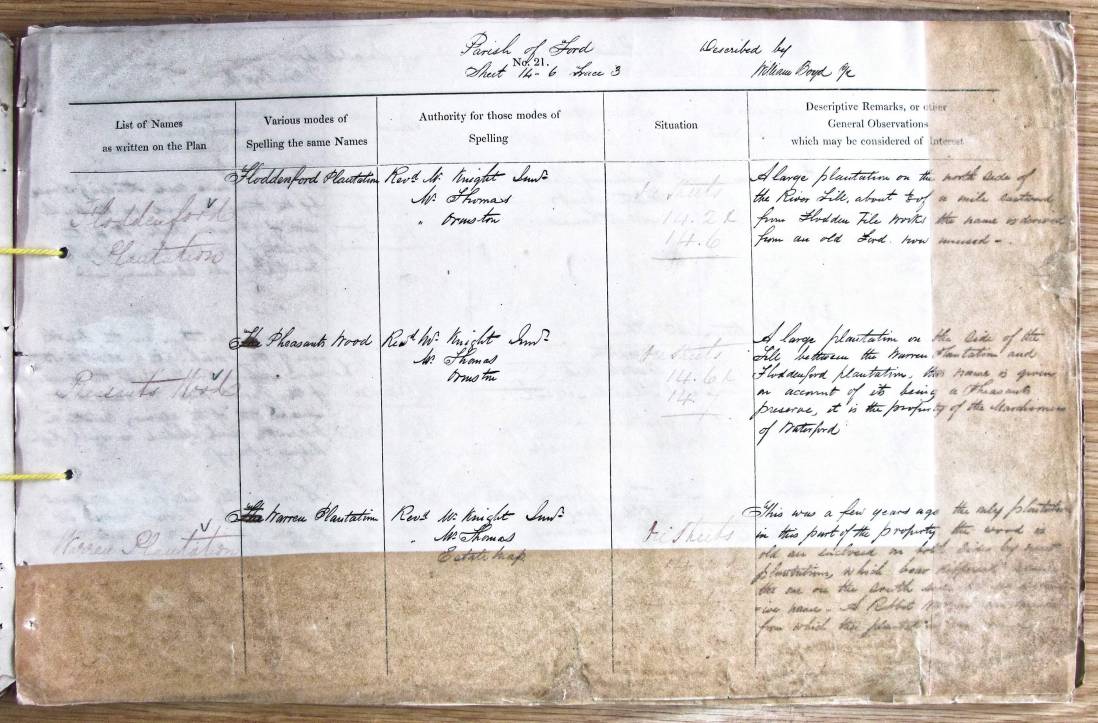 Parish of Ford
No. 21.
Sheet 14-6 Trace 3
Described by
William Boyd
List of Names
as written on the Plan
Various modes of
Spelling the same Names
Authority for those modes of
Spelling
Situation
Descriptive Remarks, or other
General Observations
which may be considered of Interest
Floddenford
Plantation
Floddenford Plantation
Revd. W. Knight
Mr. Thomas
" Ormston
Sheets
14.2 &
14.6
A large plantation on the north side of
the River Till, about of a mile eastward
from Flodden Tile Works the name is derived
from an old Ford now unused -
Pheasants Wood
The Pheasants Wood
Revd. W. Knight
Mr. Thomas
Ormston
Sheets
14.6 &
14.
A large plantation on the side of the
Till between the Warren Plantation and
Floddenford plantation, this name is given
on account of its being a Pheasants
preserve, it is the property of the Marchioness
of Waterford
Warren Plantation
The Warren Plantation
Revd. W. Knight
" Mr. Thomas
Estate Map
Sheets
This was a few years ago the only plantation
in this part of the property the wood is
old and inclosed on both sides by
plantations, which bear different
the one on the south
name - A Rabbit
from which this